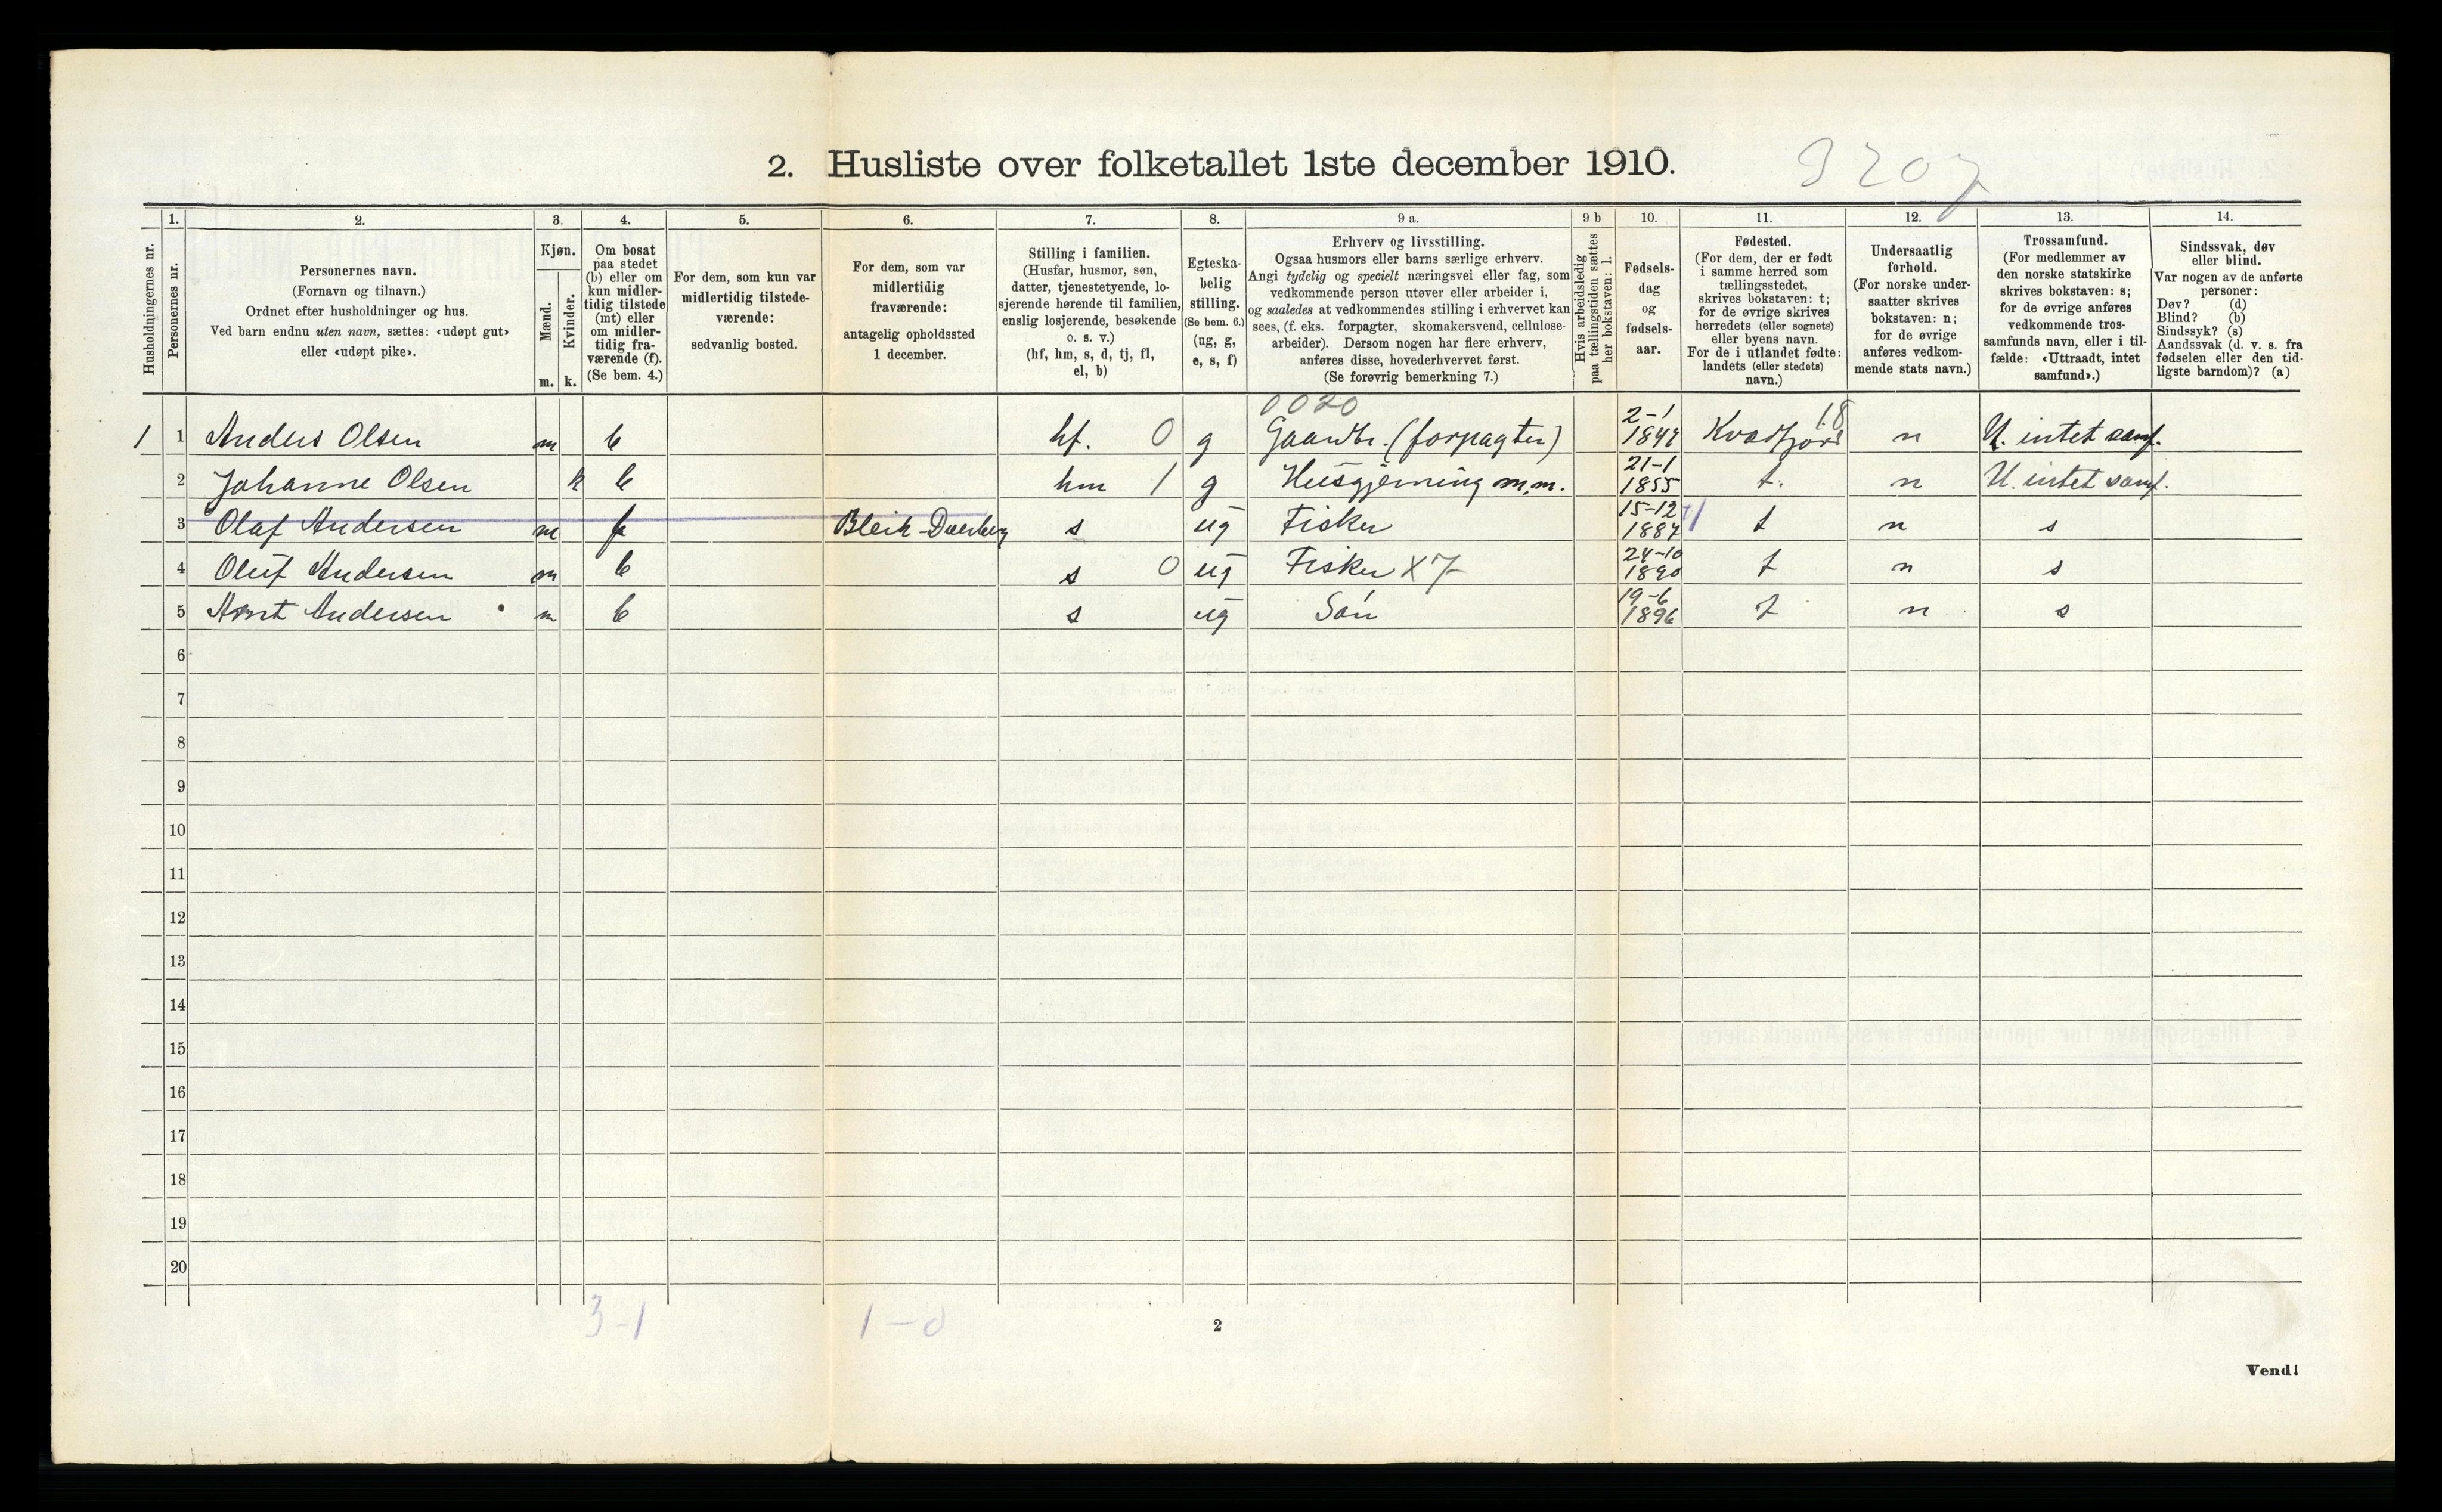 2. Husliste over folketallet 1ste december 1910.
9207
Husholdningernes nr.
1. Personernes nr.
2. Personernes navn.
(Fornavn og tilnavn.)
Ordnet efter husholdninger og hus.
Ved barn endnu uten navn, sættes: «udøpt gut»
eller «udøpt pike».
3. Kjøn.
Mænd. m.
Kvinder. k.
4. Om bosat
paa stedet
(b) eller om
kun midler-
tidig tilstede
(mt) eller
om midler-
tidig fra-
værende (f).
(Se bem. 4.)
5. For dem, som kun var
midlertidig tilstede-
værende:
sedvanlig bosted.
6. For dem, som var
midlertidig
fraværende:
antagelig opholdssted
1 december.
7. Stilling i familien.
(Husfar, husmor, søn,
datter, tjenestetyende, lo-
sjerende hørende til familien,
enslig losjerende, besøkende
o. s. v.)
(hf, hm, s, d, tj, fl,
el, b)
8. Egteska-
belig
stilling.
(Se bem. 6.)
(ug, g,
e, s, f)
9 a. Erhverv og livsstilling.
Ogsaa husmors eller barns særlige erhverv.
Angi tydelig og specielt næringsvei eller fag, som
vedkommende person utøver eller arbeider i,
og saaledes at vedkommendes stilling i erhvervet kan
sees, (f. eks. forpagter, skomakersvend, cellulose-
arbeider). Dersom nogen har flere erhverv,
anføres disse, hovederhvervet først.
(Se forøvrig bemerkning 7.)
9 b Hvis arbeidsledig
paa tællingstiden sættes
her bokstaven: l.
10. Fødsels-
dag
og
fødsels-
aar.
11. Fødested.
(For dem, der er født
i samme herred som
tællingsstedet,
skrives bokstaven: t;
for de øvrige skrives
herredets (eller sognets)
eller byens navn.
For de i utlandet fødte:
landets (eller stedets)
navn.)
12. Undersaatlig
forhold.
(For norske under-
saatter skrives
bokstaven: n;
for de øvrige
anføres vedkom-
mende stats navn.)
13. Trossamfund.
(For medlemmer av
den norske statskirke
skrives bokstaven: s;
for de øvrige anføres
vedkommende tros-
samfunds navn, eller i til-
fælde: «Uttraadt, intet
samfund».)
14. Sindssvak, døv
eller blind.
Var nogen av de anførte
personer:
Døv? (d)
Blind? (b)
Sindssyk? (s)
Aandssvak (d. v. s. fra
fødselen eller den tid-
ligste barndom)? (a)
0020
1 1 Anders Olsen m b hf. 0 g Gaardbr. (forpagter) 2-1 Kvædfjord 18 n U. intet samf.
2 Johanne Olsen k b hm 1 g Husgjerning m.m. 21-1 1855 t. n U. intet samf.
3 Olaf Andersen m f Bleik - s ug Fisker 15-12 1887 t n s
4 Oluf Andersen m b s 0 ug Fisker X 7 24-10 1890 t n s
5 Arnt Andersen m b s ug Søn 19-6 1896 t n s
6
7
8
9
10
11
12
13
14
15
16
17
18
19
20
3-1 1-0
2
Vend!